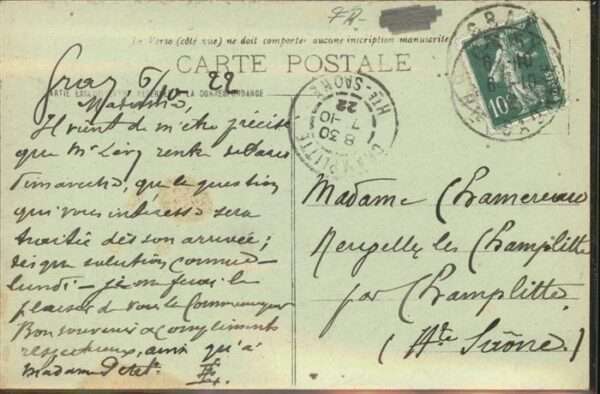 Le Verso (côté vue) ne doit comporter aucune inscription manuscrite
CARTE POSTALE
LA CORRESPONDANCE
Gray, 6/10 22
Madame,
Il vient de m'être précisé
que Mr Lévy rentre de Paris
dimanche, que la question
qui vous intéresse sera
traitée dès son arrivée;
dès que solution connue –
lundi – je me ferai le
plaisir de vous la communiquer
Bon souvenir & compliments
respectueux, ainsi qu'à
Madame
CHAMPLITTE
HTE-SAONE
8 30
7 -10
22
GRAY
6 -10
10
Madame Chamereau
les Champlitte
par Champlitte
(Hte Saône)